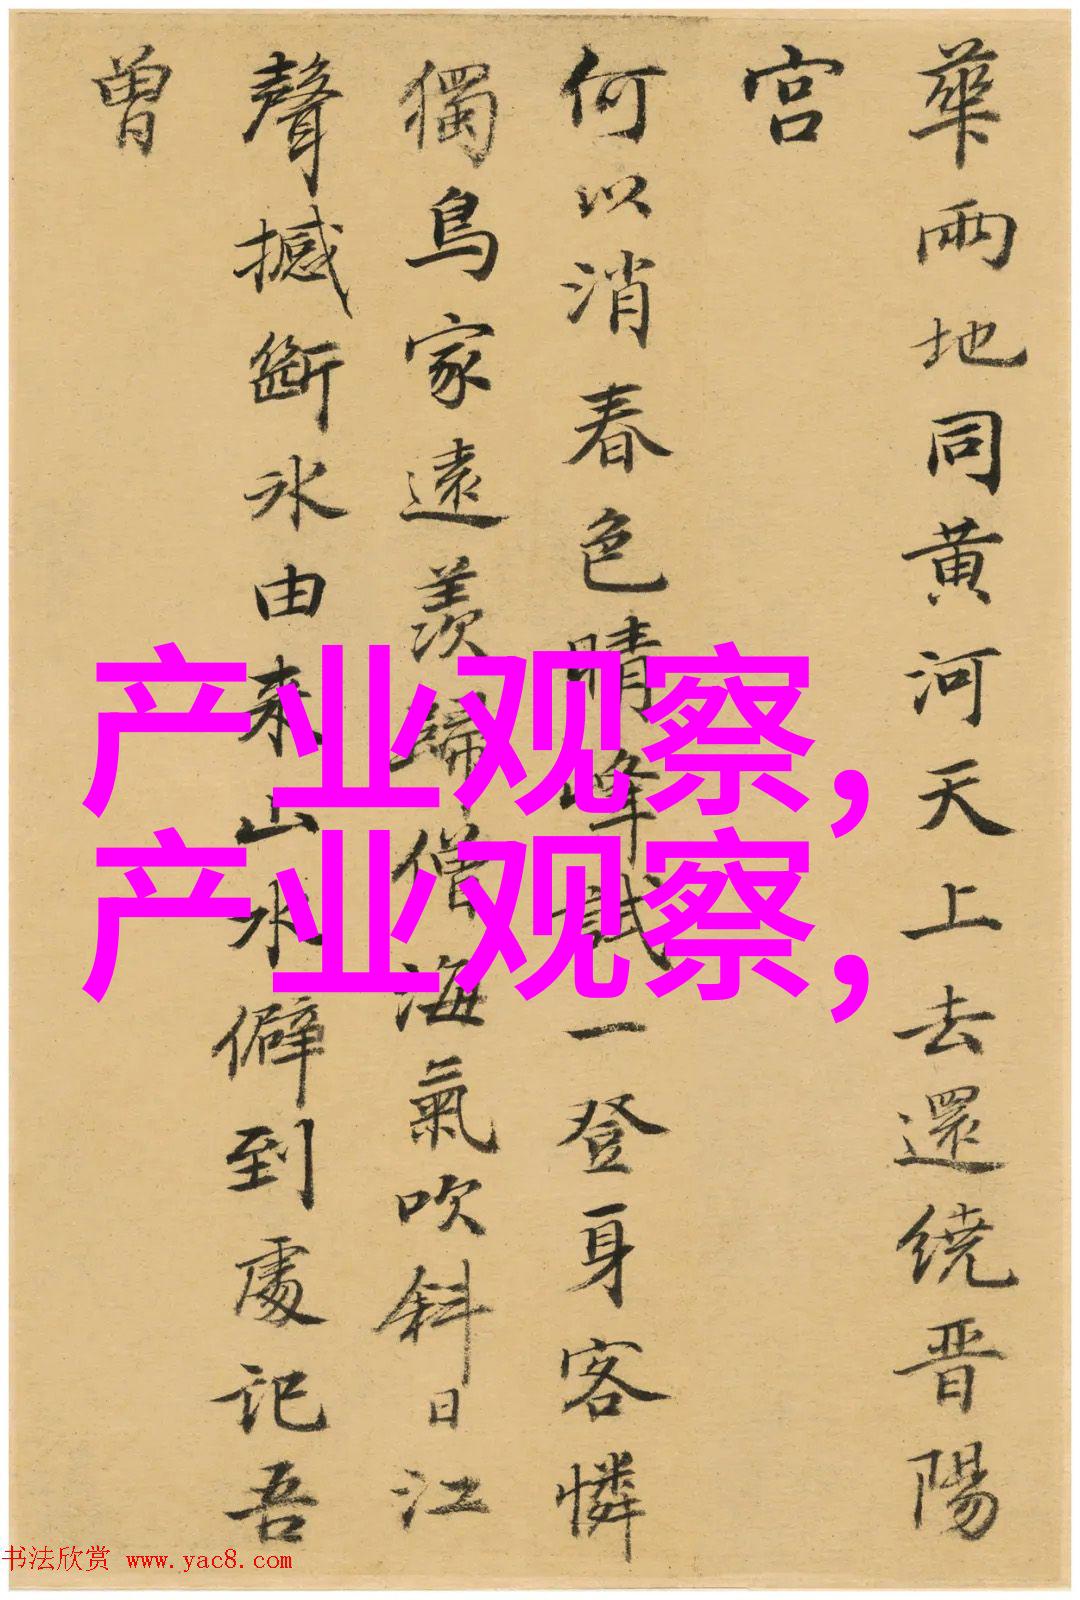 華兩地同黄河天上去還绕晋陽
宫
何以消春色晴峰試一登身客憐
獨鳥家遠羨歸僧海氣吹斜日江
聲撼斷冰由来山水僻到處記吾
曾
产业观察,
产业观察,
书法欣赏 www.yac8.com